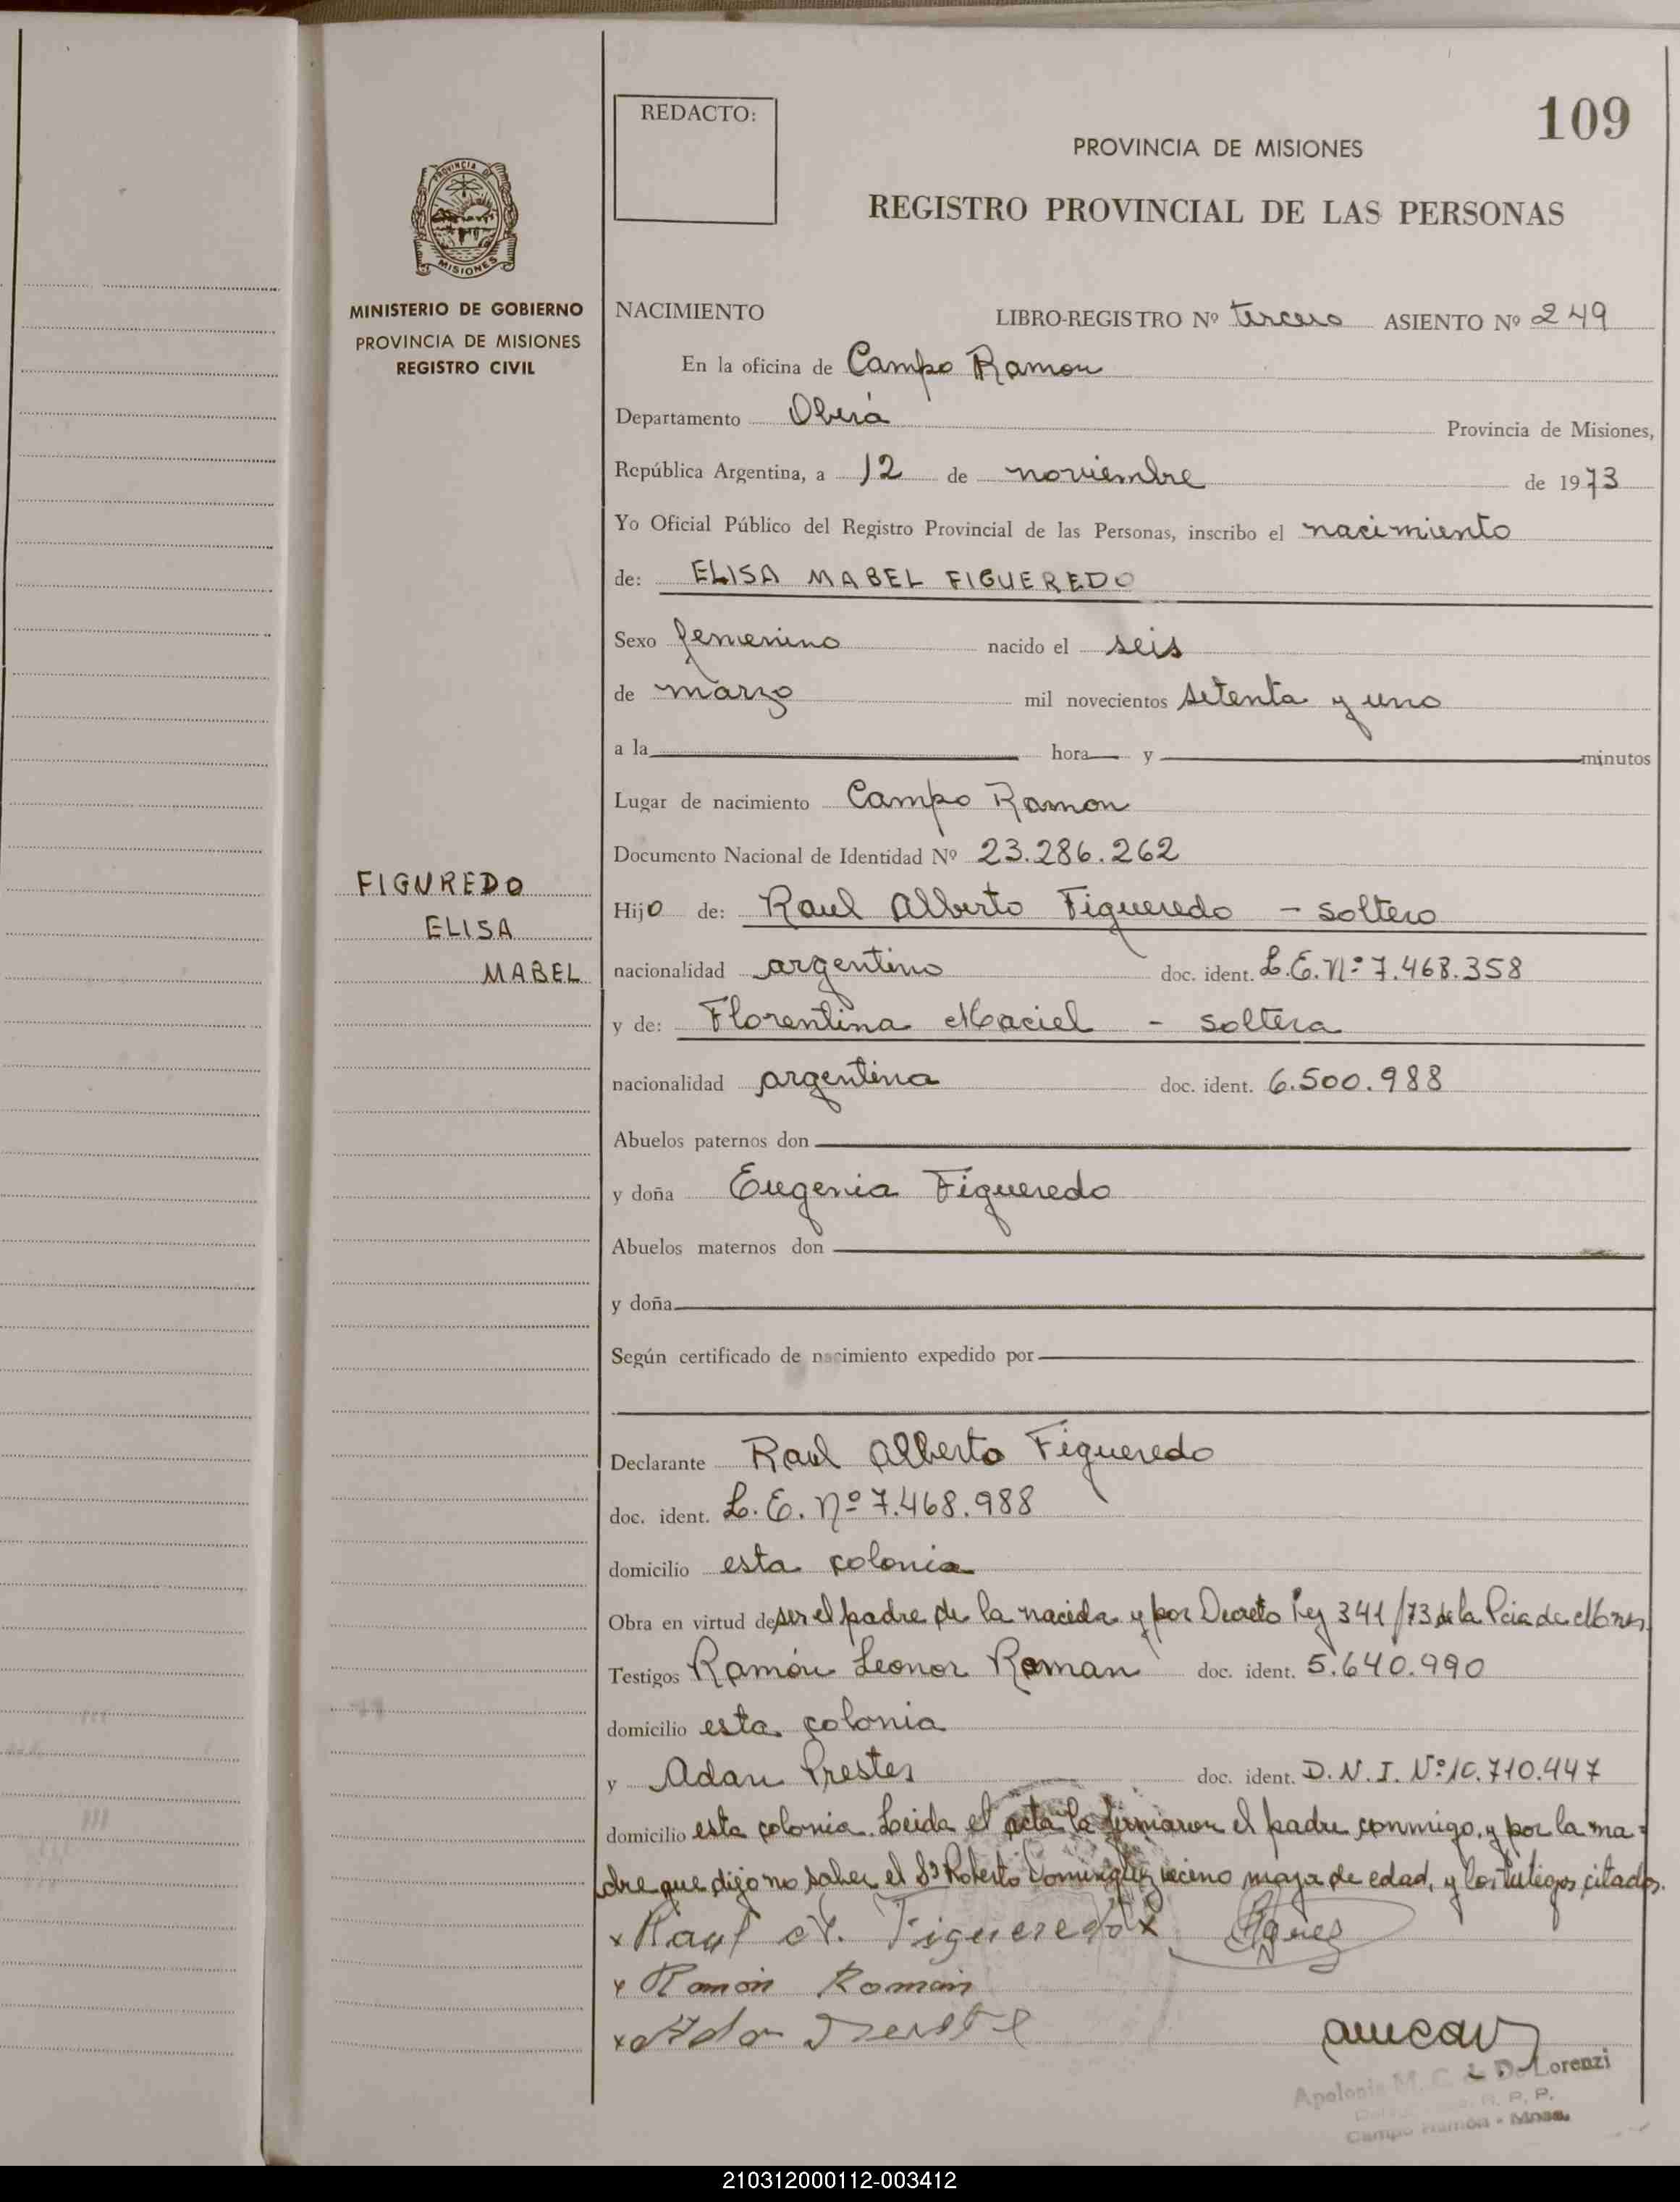 REDACTO:
109
PROVINCIA DE MISIONES
REGISTRO PROVINCIAL DE LAS PERSONAS
PROVINCIA DE
MISIONES
MINISTERIO DE GOBIERNO
PROVINCIA DE MISIONES
REGISTRO CIVIL
NACIMIENTO LIBRO-REGISTRO Nº tercero ASIENTO Nº 249
En la oficina de Campo Ramon
Departamento Oberá Provincia de Misiones,
República Argentina, a 12 de noviembre de 1973
Yo Oficial Público del Registro Provincial de las Personas, inscribo el nacimiento
de: ELISA MABEL FIGUEREDO
Sexo femenino nacido el seis
de marzo mil novecientos setenta y uno
a la hora y minutos
Lugar de nacimiento Campo Ramon
Documento Nacional de Identidad Nº 23.286.262
FIGUREDO
ELISA
MABEL
Hijo de: Raul Alberto Figueredo - soltero
nacionalidad argentino doc. ident. L.E. Nº 7.468.358
y de: Florentina Maciel - soltera
nacionalidad argentina doc. ident. 6.500.988
Abuelos paternos don
y doña Eugenia Figueredo
Abuelos maternos don
y doña
Según certificado de nacimiento expedido por
Declarante Raul Alberto Figueredo
doc. ident. L.E. Nº 7.468.988
domicilio esta colonia
Obra en virtud de ser el padre de la nacida y por Decreto Ley 341/73 de la Pcia de Mnes.
Testigos Ramón Leonor Roman doc. ident. 5.640.990
domicilio esta colonia
y Adan Prestes doc. ident. D.N.I. Nº 10.710.447
domicilio esta colonia. Leida el acta la firmaron el padre conmigo, y por la ma-
dre que dijo no saber el Sr Roberto Dominguez vecino mayor de edad, y los testigos citados.
x Raul A. Figueredo x
x Ramón Román
x
Apolonia M. C. de De Lorenzi
R. P. P.
Campo Ramón - Mnes.
210312000112-003412